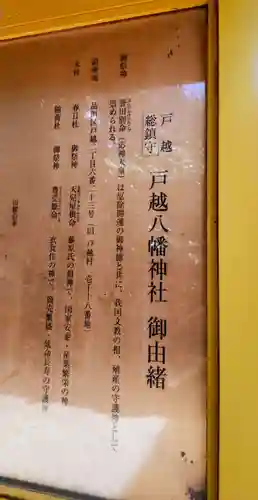 戸越
総鎮守
戸越八幡神社 御由緒
御祭神
誉田別命（応神天皇）は厄除開運の御神徳と共に、我国文教の祖、殖産の守護神として
崇められる。
鎮座地
品川区戸越二丁目六番二十三号（旧 戸越村
末社
春日社 御祭神 天児屋根命 藤原氏の祖神で、国家安泰・産業繁栄の神
稲荷社 御祭神 豊受姫命 衣食住の神で、商売繁盛・延命長寿の守護神